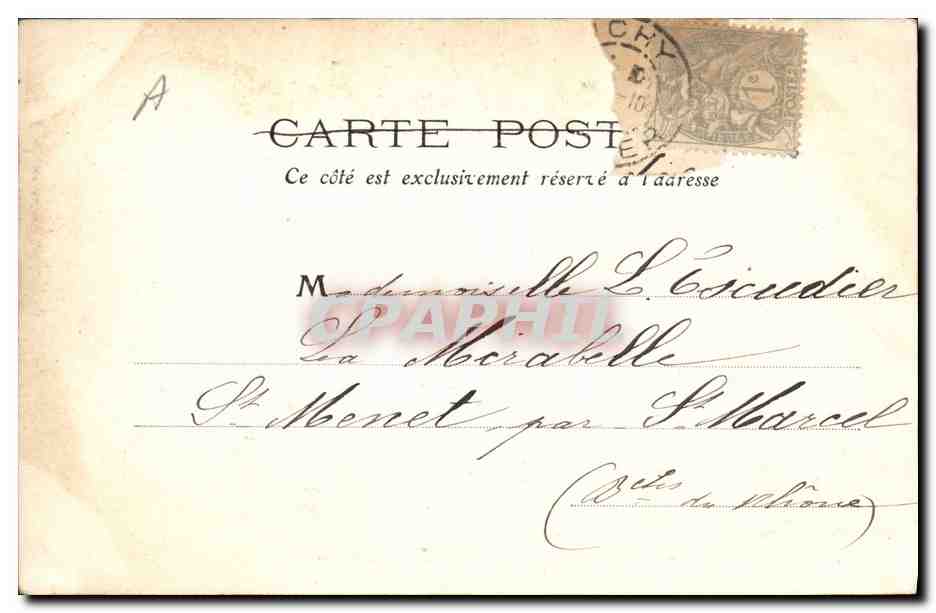 A
CHY
1c
POSTES
CARTE POST
Ce côté est exclusivement réservé à l'adresse
Mademoiselle L. Escudier
CPAPHIL
La Mirabelle
St Menet par St Marcel
(Bches du Rhône)